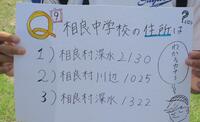 Q 9 相良中学校の住所は
1) 相良村深水2130
2) 相良村川辺1025
3) 相良村深水1322
わかるかナァ～